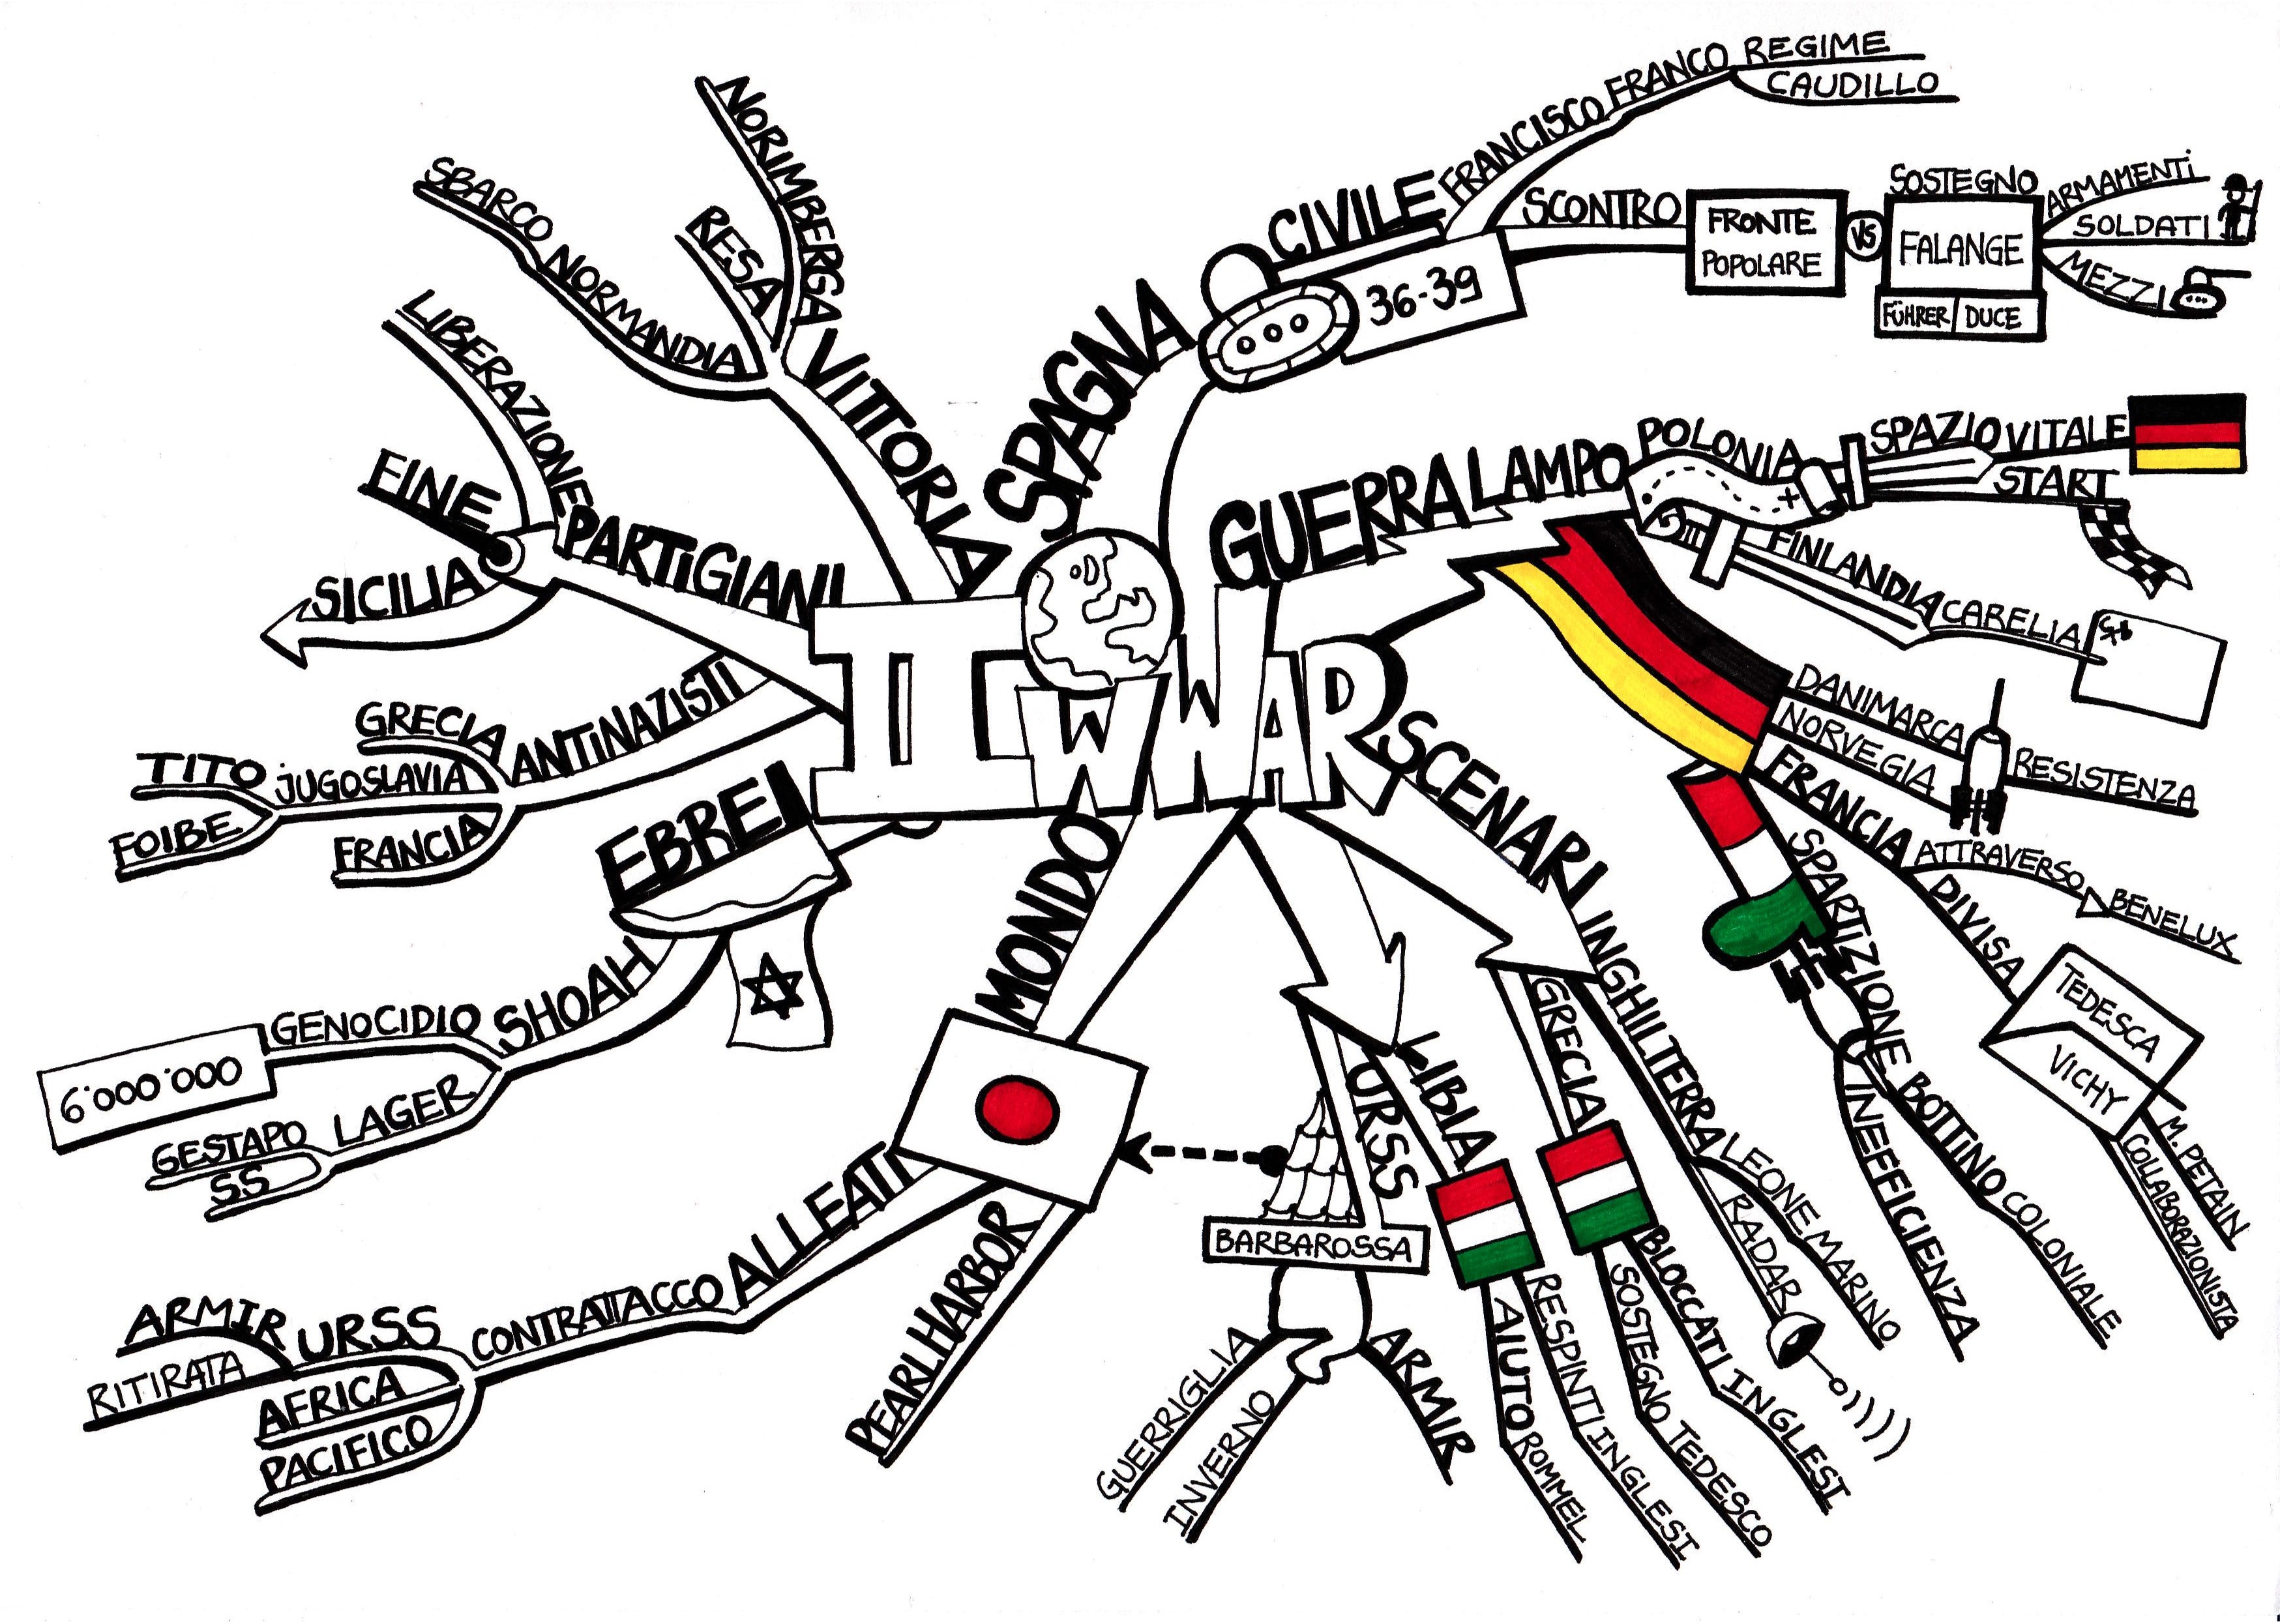 II WWAR
SPAGNA
CIVILE
36-39
FRANCISCO FRANCO
REGIME
CAUDILLO
SCONTRO
FRONTE
POPOLARE
VS
SOSTEGNO
FALANGE
FÜHRER
DUCE
ARMAMENTi
SOLDATI
MEZZI
GUERRA LAMPO
POLONIA
SPAZIO VITALE
START
FINLANDIA
CARELIA
DANIMARCA
NORVEGIA
RESISTENZA
FRANCIA
ATTRAVERSO
BENELUX
DIVISA
TEDESCA
VICHY
M. PETAIN
COLLABORAZIONISTA
SPARTIZIONE
BOTTINO COLONIALE
INEFFICIENZA
SCENARI
INGHILTERRA
LEONE MARINO
RADAR
GRECIA
BLOCCATI INGLESI
SOSTEGNO TEDESCO
LIBIA
RESPINTI INGLESI
AIUTO ROMMEL
URSS
BARBAROSSA
ARMIR
INVERNO
GUERRIGLIA
MONDO
PEARL HARBOR
ALLEATI
CONTRATTACCO
URSS
ARMIR
RITIRATA
AFRICA
PACIFICO
EBREI
SHOAH
GENOCIDIO
6'000'000
LAGER
GESTAPO
SS
ANTiNAZISTI
GRECIA
jUGOSLAVIA
TITO
FOIBE
FRANCIA
PARTiGIANI
LIBERAZIONE
FINE
SICILIA
VITTORIA
NORIMBERGA
RESA
SBARCO NORMANDIA